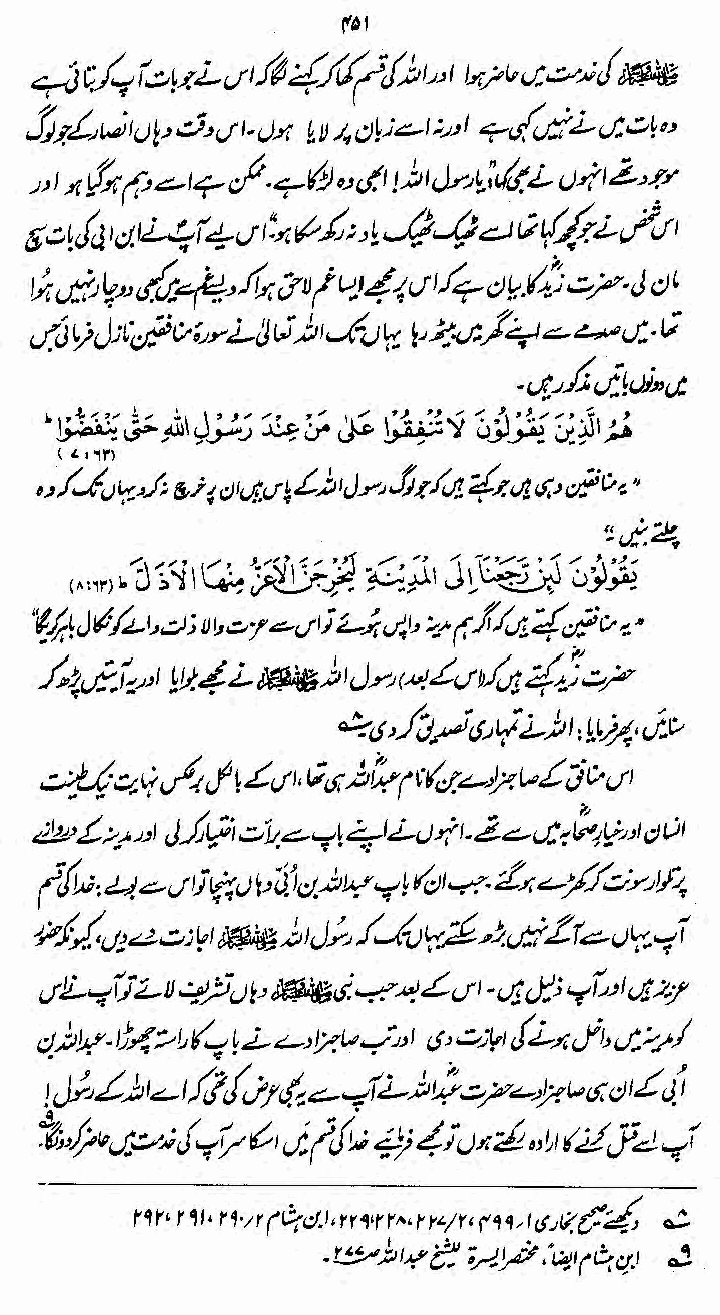 ۴۵۱
ﷺ کی خدمت میں حاضر ہوا اور اللہ کی قسم کھا کر کہنے لگا کہ اس نے جو بات آپ کو بتائی ہے
وہ بات میں نے نہیں کہی ہے اور نہ اسے زبان پر لایا ہوں۔ اس وقت وہاں انصار کے جو لوگ
موجود تھے انہوں نے بھی کہا: "یا رسول اللہ! ابھی وہ لڑکا ہے۔ ممکن ہے اسے وہم ہو گیا ہو اور
اس شخص نے جو کچھ کہا تھا اسے ٹھیک ٹھیک یاد نہ رکھ سکا ہو۔" اس لیے آپؐ نے ابن ابی کی بات سچ
مان لی۔ حضرت زیدؓ کا بیان ہے کہ اس پر مجھے ایسا غم لاحق ہوا کہ ویسے غم سے میں کبھی دوچار نہیں ہوا
تھا۔ میں صدمے سے اپنے گھر میں بیٹھ رہا یہاں تک اللہ تعالیٰ نے سورۂ منافقین نازل فرمائی جس
میں دونوں باتیں مذکور ہیں۔
هُمُ الَّذِيْنَ يَقُوْلُوْنَ لَا تُنْفِقُوْا عَلٰى مَنْ عِنْدَ رَسُوْلِ اللهِ حَتّٰى يَنْفَضُّوْا ؕ
(۷:۶۳)
"یہ منافقین وہی ہیں جو کہتے ہیں کہ جو لوگ رسول اللہ کے پاس ہیں ان پر خرچ نہ کرو یہاں تک کہ وہ
چلتے بنیں۔"
يَقُوْلُوْنَ لَئِنْ رَّجَعْنَآ اِلَى الْمَدِيْنَةِ لَيُخْرِجَنَّ الْاَعَزُّ مِنْهَا الْاَذَلَّ ؕ (۸:۶۳)
"یہ منافقین کہتے ہیں کہ اگر ہم مدینہ واپس ہوئے تو اس سے عزت والا ذلت والے کو نکال باہر کرے گا"
حضرت زیدؓ کہتے ہیں کہ (اس کے بعد) رسول اللہ ﷺ نے مجھے بلوایا اور یہ آیتیں پڑھ کر
سنائیں، پھر فرمایا: اللہ نے تمہاری تصدیق کر دی۔ ۸؎
اس منافق کے صاجزادے جن کا نام عبداللہؓ ہی تھا، اس کے بالکل برعکس نہایت نیک طینت
انسان اور خیارِ صحابہؓ میں سے تھے۔ انہوں نے اپنے باپ سے برأت اختیار کر لی اور مدینہ کے دروازے
پر تلوار سونت کر کھڑے ہو گئے۔ جب ان کا باپ عبداللہ بن اُبَیّ وہاں پہنچا تو اس سے بولے: خدا کی قسم
آپ یہاں سے آگے نہیں بڑھ سکتے یہاں تک کہ رسول اللہ ﷺ اجازت دے دیں، کیونکہ حضور
عزیز ہیں اور آپ ذلیل ہیں۔ اس کے بعد جب نبی ﷺ وہاں تشریف لائے تو آپ نے اس
کو مدینہ میں داخل ہونے کی اجازت دی اور تب صاجزادے نے باپ کا راستہ چھوڑا۔ عبداللہ بن
اُبی کے ان ہی صاجزادے حضرت عبداللہؓ نے آپ سے یہ بھی عرض کی تھی کہ اے اللہ کے رسول!
آپ اسے قتل کرنے کا ارادہ رکھتے ہوں تو مجھے فرمائیے خدا کی قسم میں اسکا سر آپ کی خدمت میں حاضر کر دونگا۔ ۹؎
۸؎ دیکھئے صحیح بخاری ۱/۴۹۹، ۲/۲۲۷، ۲۲۸، ۲۲۹، ابن ہشام ۲/۲۹۰، ۲۹۱، ۲۹۲
۹؎ ابن ہشام ایضاً، مختصر السیرۃ للشیخ عبداللہ ص ۲۷۷۔